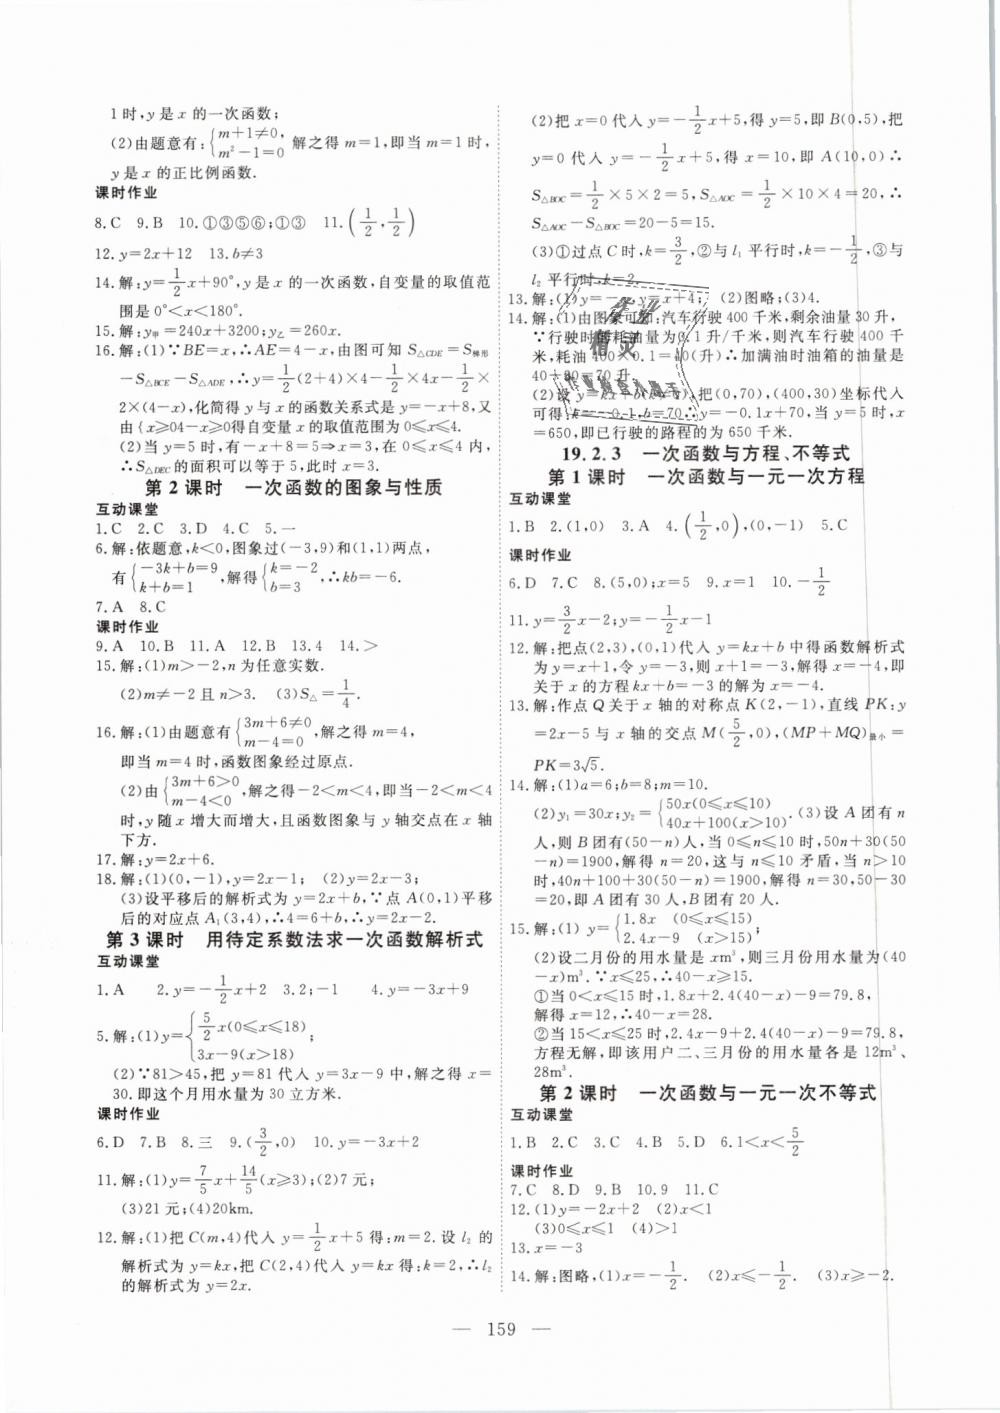 1时,y是x的一次函数;
(2)由题意有:{m+1≠0, m²-1=0 解之得m=1,即当m=1时,
y是x的正比例函数.
课时作业
8.C 9.B 10.①③⑤⑥;①③ 11.(1/2,1/2)
12.y=2x+12 13.b≠3
14.解:y=1/2x+90°,y是x的一次函数,自变量的取值范
围是0°<x<180°.
15.解:y甲=240x+3200;y乙=260x.
16.解:(1)∵BE=x,∴AE=4-x,由图可知S△CDE=S梯形
-S△BCE-S△ADE,∴y=1/2(2+4)×4-1/2×4x-1/2×
2×(4-x),化简得y与x的函数关系式是y=-x+8,又
由{x≥04-x≥0得自变量x的取值范围为0≤x≤4.
(2)当y=5时,有-x+8=5⇒x=3,在0≤x≤4内,
∴S△DEC的面积可以等于5,此时x=3.
第2课时 一次函数的图象与性质
互动课堂
1.C 2.C 3.D 4.C 5.一
6.解:依题意,k<0,图象过(-3,9)和(1,1)两点,
有{-3k+b=9 k+b=1,解得{k=-2 b=3,∴kb=-6.
7.A 8.C
课时作业
9.A 10.B 11.A 12.B 13.4 14.>
15.解:(1)m>-2,n为任意实数.
(2)m≠-2且n>3. (3)S△=1/4.
16.解:(1)由题意有{3m+6≠0 m-4=0,解之得m=4,
即当m=4时,函数图象经过原点.
(2)由{3m+6>0 m-4<0,解之得-2<m<4,即当-2<m<4
时,y随x增大而增大,且函数图象与y轴交点在x轴
下方.
17.解:y=2x+6.
18.解:(1)(0,-1),y=2x-1; (2)y=2x-3;
(3)设平移后的解析式为y=2x+b,∵点A(0,1)平移
后的对应点A₁(3,4),∴4=6+b,∴y=2x-2.
第3课时 用待定系数法求一次函数解析式
互动课堂
1.A 2.y=-1/2x+2 3.2;-1 4.y=-3x+9
5.解:(1)y={5/2x(0≤x≤18) 3x-9(x>18);
(2)∵81>45,把y=81代入y=3x-9中,解之得x=
30.即这个月用水量为30立方米.
课时作业
6.D 7.B 8.三 9.(3/2,0) 10.y=-3x+2
11.解:(1)y=7/5x+14/5(x≥3);(2)7元;
(3)21元;(4)20km.
12.解:(1)把C(m,4)代入y=-1/2x+5得:m=2.设l₂的
解析式为y=kx,把C(2,4)代入y=kx得:k=2,∴l₂
的解析式为y=2x.
(2)把x=0代入y=-1/2x+5,得y=5,即B(0,5),把
y=0代入y=-1/2x+5,得x=10,即A(10,0)∴
S△BOC=1/2×5×2=5,S△AOC=1/2×10×4=20,∴
S△AOC-S△BOC=20-5=15.
(3)①过点C时,k=3/2,②与l₁平行时,k=-1/2,③与
l₂平行时,k=2.
13.解:(1)y=-x,y=x+4; (2)图略;(3)4.
14.解:(1)由图象可知:汽车行驶400千米,剩余油量30升,
∵行驶时的耗油量为0.1升/千米,则汽车行驶400千
米,耗油400×0.1=40(升)∴加满油时油箱的油量是
40+30=70升.
(2)设y=kx+b(k≠0),把(0,70),(400,30)坐标代入
可得:k=-0.1,b=70∴y=-0.1x+70,当y=5时,x
=650,即已行驶的路程的为650千米.
19.2.3 一次函数与方程、不等式
第1课时 一次函数与一元一次方程
互动课堂
1.B 2.(1,0) 3.A 4.(1/2,0),(0,-1) 5.C
课时作业
6.D 7.C 8.(5,0);x=5 9.x=1 10.-1/2
11.y=3/2x-2;y=-1/2x-1
12.解:把点(2,3),(0,1)代入y=kx+b中得函数解析式
为y=x+1,令y=-3,则x+1=-3,解得x=-4,即
关于x的方程kx+b=-3的解为x=-4.
13.解:作点Q关于x轴的对称点K(2,-1),直线PK:y
=2x-5与x轴的交点M(5/2,0),(MP+MQ)最小=
PK=3√5.
14.解:(1)a=6;b=8;m=10.
(2)y₁=30x;y₂={50x(0≤x≤10) 40x+100(x>10).(3)设A团有n
人,则B团有(50-n)人,当0≤n≤10时,50n+30(50
-n)=1900,解得n=20,这与n≤10矛盾,当n>10
时,40n+100+30(50-n)=1900,解得n=30,50-30
=20,即A团有30人,B团有20人.
15.解:(1) y={1.8x (0≤x≤15) 2.4x-9 (x>15);
(2)设二月份的用水量是xm³,则三月份用水量为(40
-x)m³.∵x≤25,∴40-x≥15.
①当0<x≤15时,1.8x+2.4(40-x)-9=79.8,
解得x=12,∴40-x=28.
②当15<x≤25时,2.4x-9+2.4(40-x)-9=79.8,
方程无解,即该用户二、三月份的用水量各是12m³、
28m³.
第2课时 一次函数与一元一次不等式
互动课堂
1.B 2.C 3.C 4.B 5.D 6.1<x<5/2
课时作业
7.C 8.D 9.B 10.9 11.C
12.(1)y=-2x+2 (2)x<1
(3)0≤x≤1 (4)>1
13.x=-3
14.解:图略,(1)x=-1/2. (2)x≤-1/2. (3)x≥-2.
— 159 —